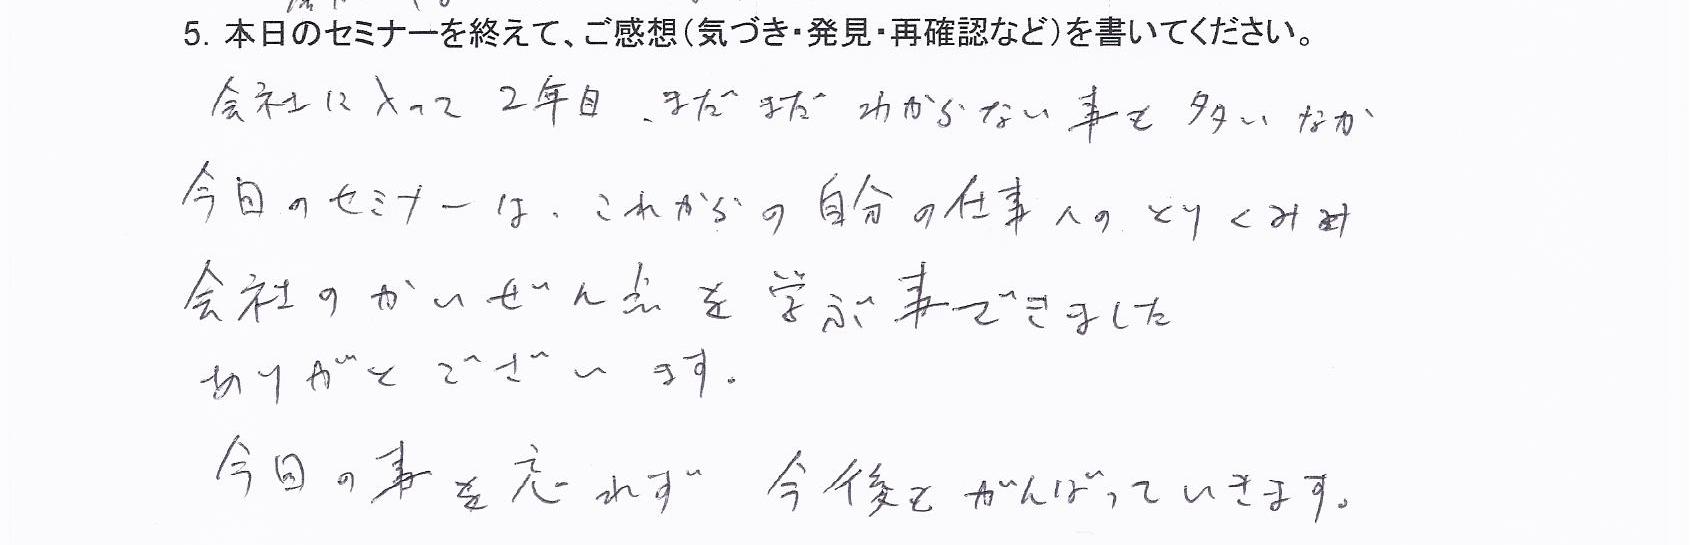 5. 本日のセミナーを終えて、ご感想(気づき・発見・再確認など)を書いてください。
会社にとって2年目、まだまだわからない事も多いなか
今日のセミナーは、これからの自分の仕事へのとりくみ
会社のかいぜん点を学ぶ事できました
ありがとございます。
今日の事を忘れず 今後もがんばっていきます。